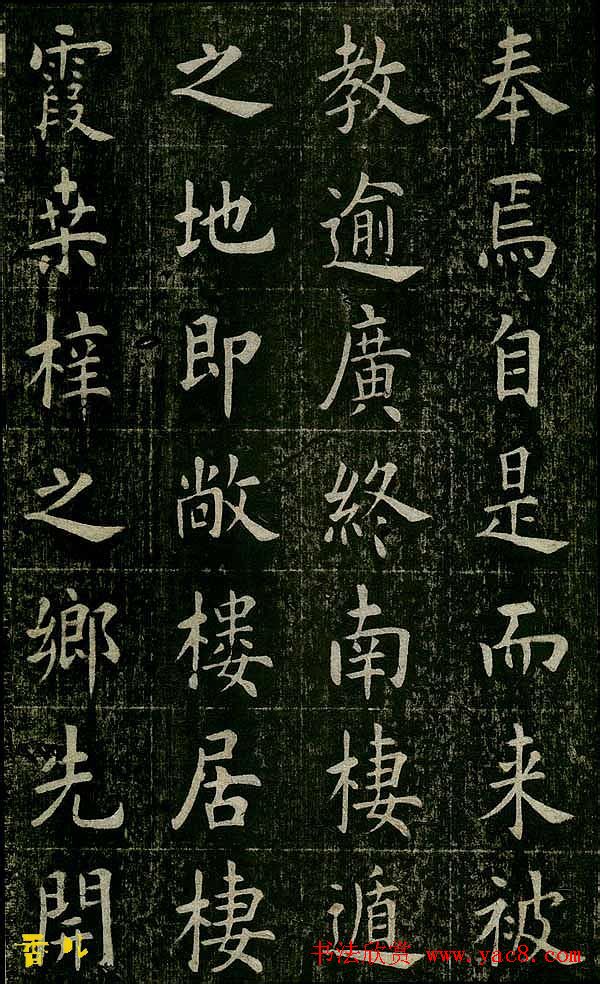 奉焉自是而来被
教逾廣終南棲遁
之地即敞樓居棲
霞桒梓之鄉先開
香儿
书法欣赏 www.yac8.com